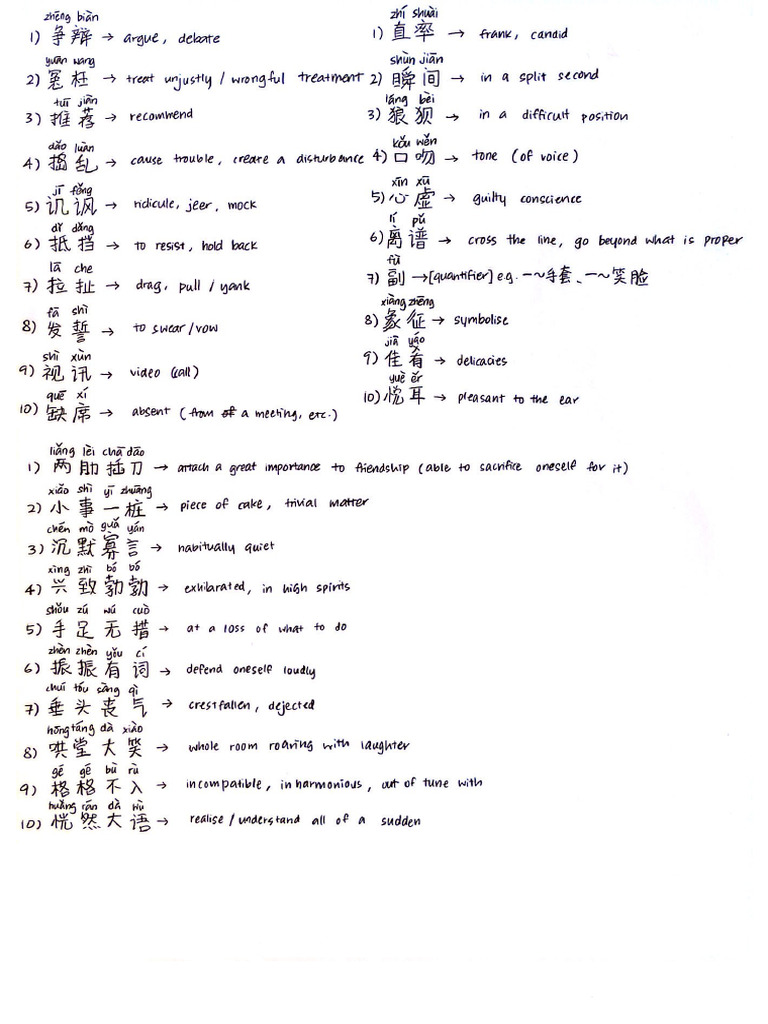 zhēng biàn
1) 争辩 → argue, debate
yuān wang
2) 冤枉 → treat unjustly / wrongful treatment
tuī jiàn
3) 推荐 → recommend
dǎo luàn
4) 捣乱 → cause trouble, create a disturbance
jī fěng
5) 讥讽 → ridicule, jeer, mock
dǐ dǎng
6) 抵挡 → to resist, hold back
lā che
7) 拉扯 → drag, pull / yank
fā shì
8) 发誓 → to swear/vow
shì xùn
9) 视讯 → video (call)
quē xí
10) 缺席 → absent (from a meeting, etc.)
zhí shuài
1) 直率 → frank, candid
shùn jiān
2) 瞬间 → in a split second
láng bèi
3) 狼狈 → in a difficult position
kǒu wěn
4) 口吻 → tone (of voice)
xīn xū
5) 心虚 → guilty conscience
lí pǔ
6) 离谱 → cross the line, go beyond what is proper
fù
7) 副 → [quantifier] e.g. 一~手套、一~笑脸
xiàng zhēng
8) 象征 → symbolise
jiā yáo
9) 佳肴 → delicacies
yuè ěr
10) 悦耳 → pleasant to the ear
liǎng lèi chā dāo
1) 两肋插刀 → attach a great importance to friendship (able to sacrifice oneself for it)
xiǎo shì yī zhuāng
2) 小事一桩 → piece of cake, trivial matter
chén mò guǎ yán
3) 沉默寡言 → habitually quiet
xìng zhì bó bó
4) 兴致勃勃 → exhilarated, in high spirits
shǒu zú wú cuò
5) 手足无措 → at a loss of what to do
zhèn zhèn yǒu cí
6) 振振有词 → defend oneself loudly
chuí tóu sàng qì
7) 垂头丧气 → crestfallen, dejected
hōng táng dà xiào
8) 哄堂大笑 → whole room roaring with laughter
gé gé bù rù
9) 格格不入 → incompatible, inharmonious, out of tune with
huǎng rán dà wù
10) 恍然大语 → realise/understand all of a sudden